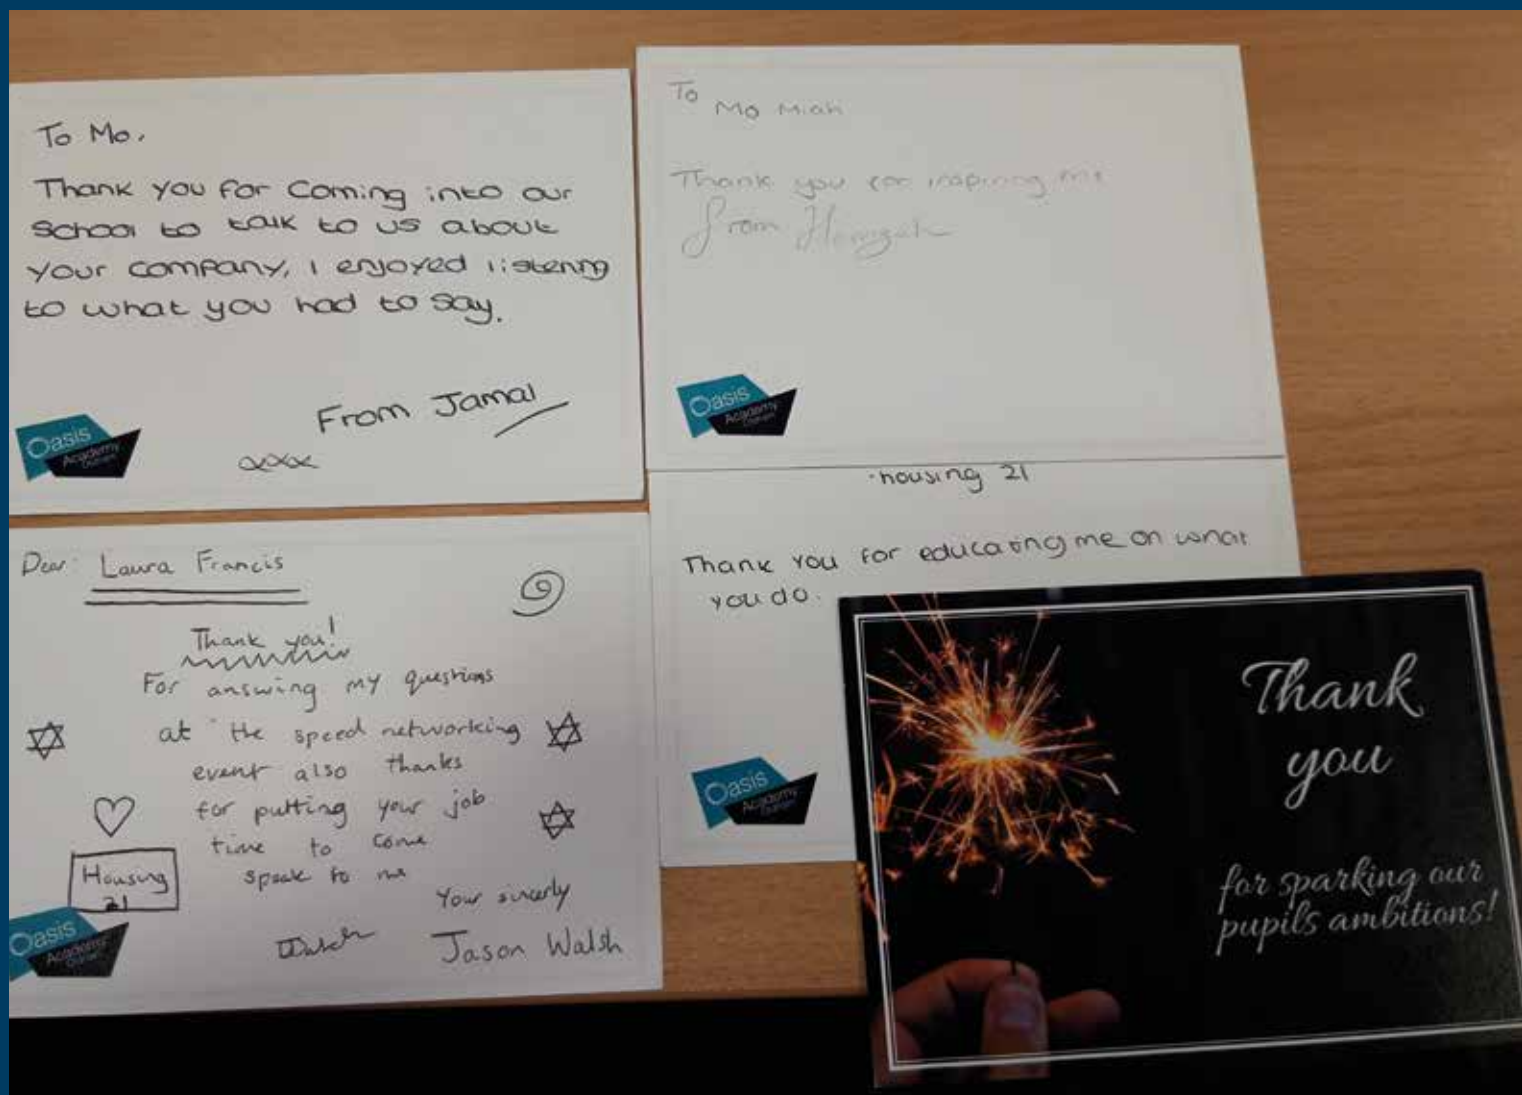 To Mo.
Thank you for coming into our
school to talk to us about
your company, I enjoyed listening
to what you had to say.
From Jamal
xxx
Oasis
Academy
Oldham
To
Mo Miah
Thank you for inspiring me
from Hamzah
Oasis
Academy
Oldham
Dear: Laura Francis
Thank you!
For answing my questions
at the speed networking
event also thanks
for putting your job
time to come
speak to me
Housing
21
Your sincerly
Jason Walsh
Oasis
Academy
Oldham
housing 21
Thank you for educating me on what
you do.
Oasis
Academy
Oldham
Thank
you
for sparking our
pupils ambitions!